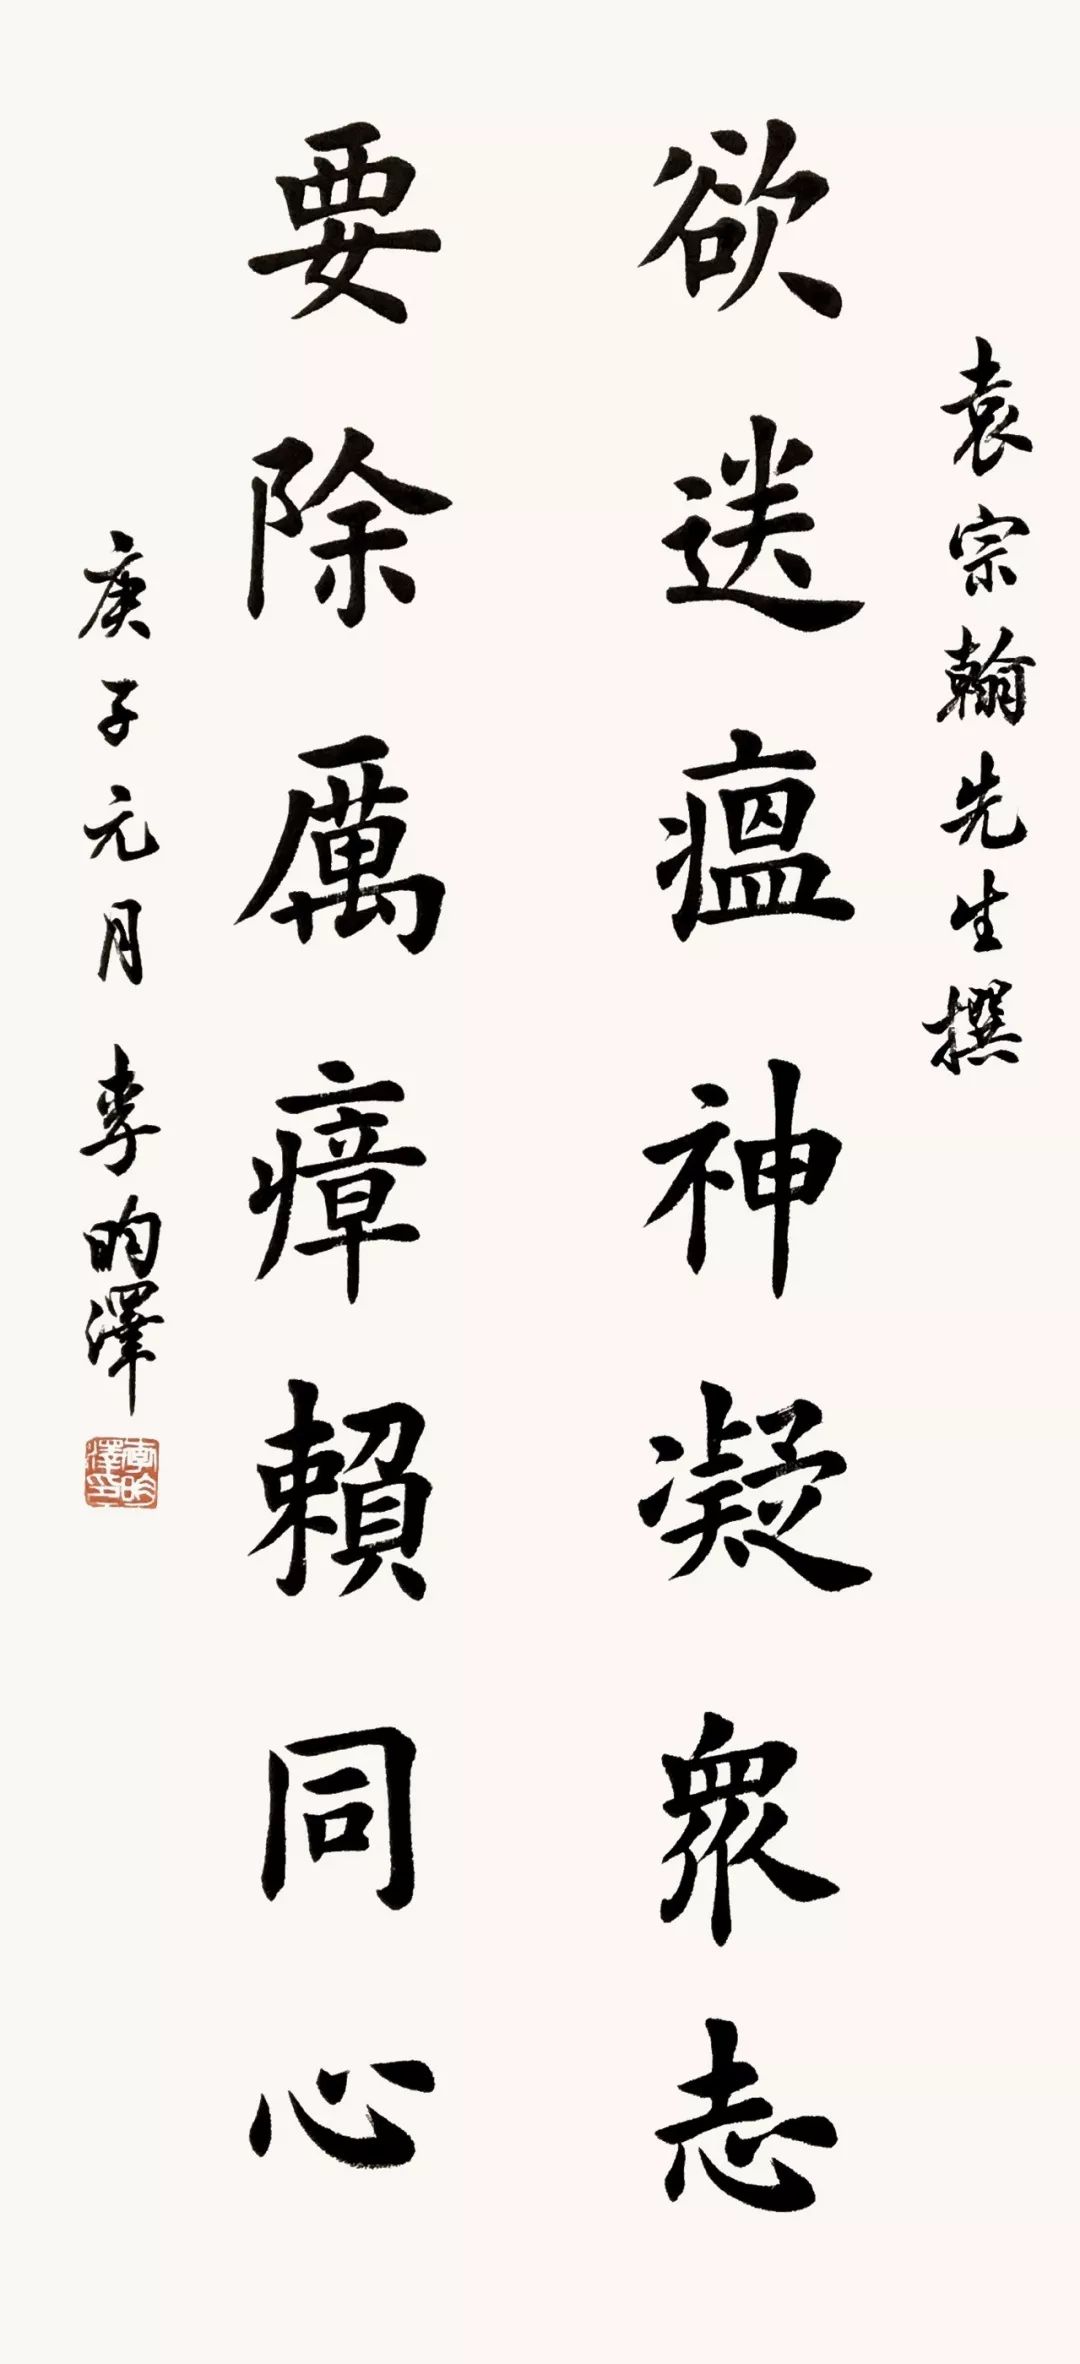 袁宗翰先生撰
欲送瘟神凝衆志
要除厲瘴賴同心
庚子元月 李昀澤
李昀澤印